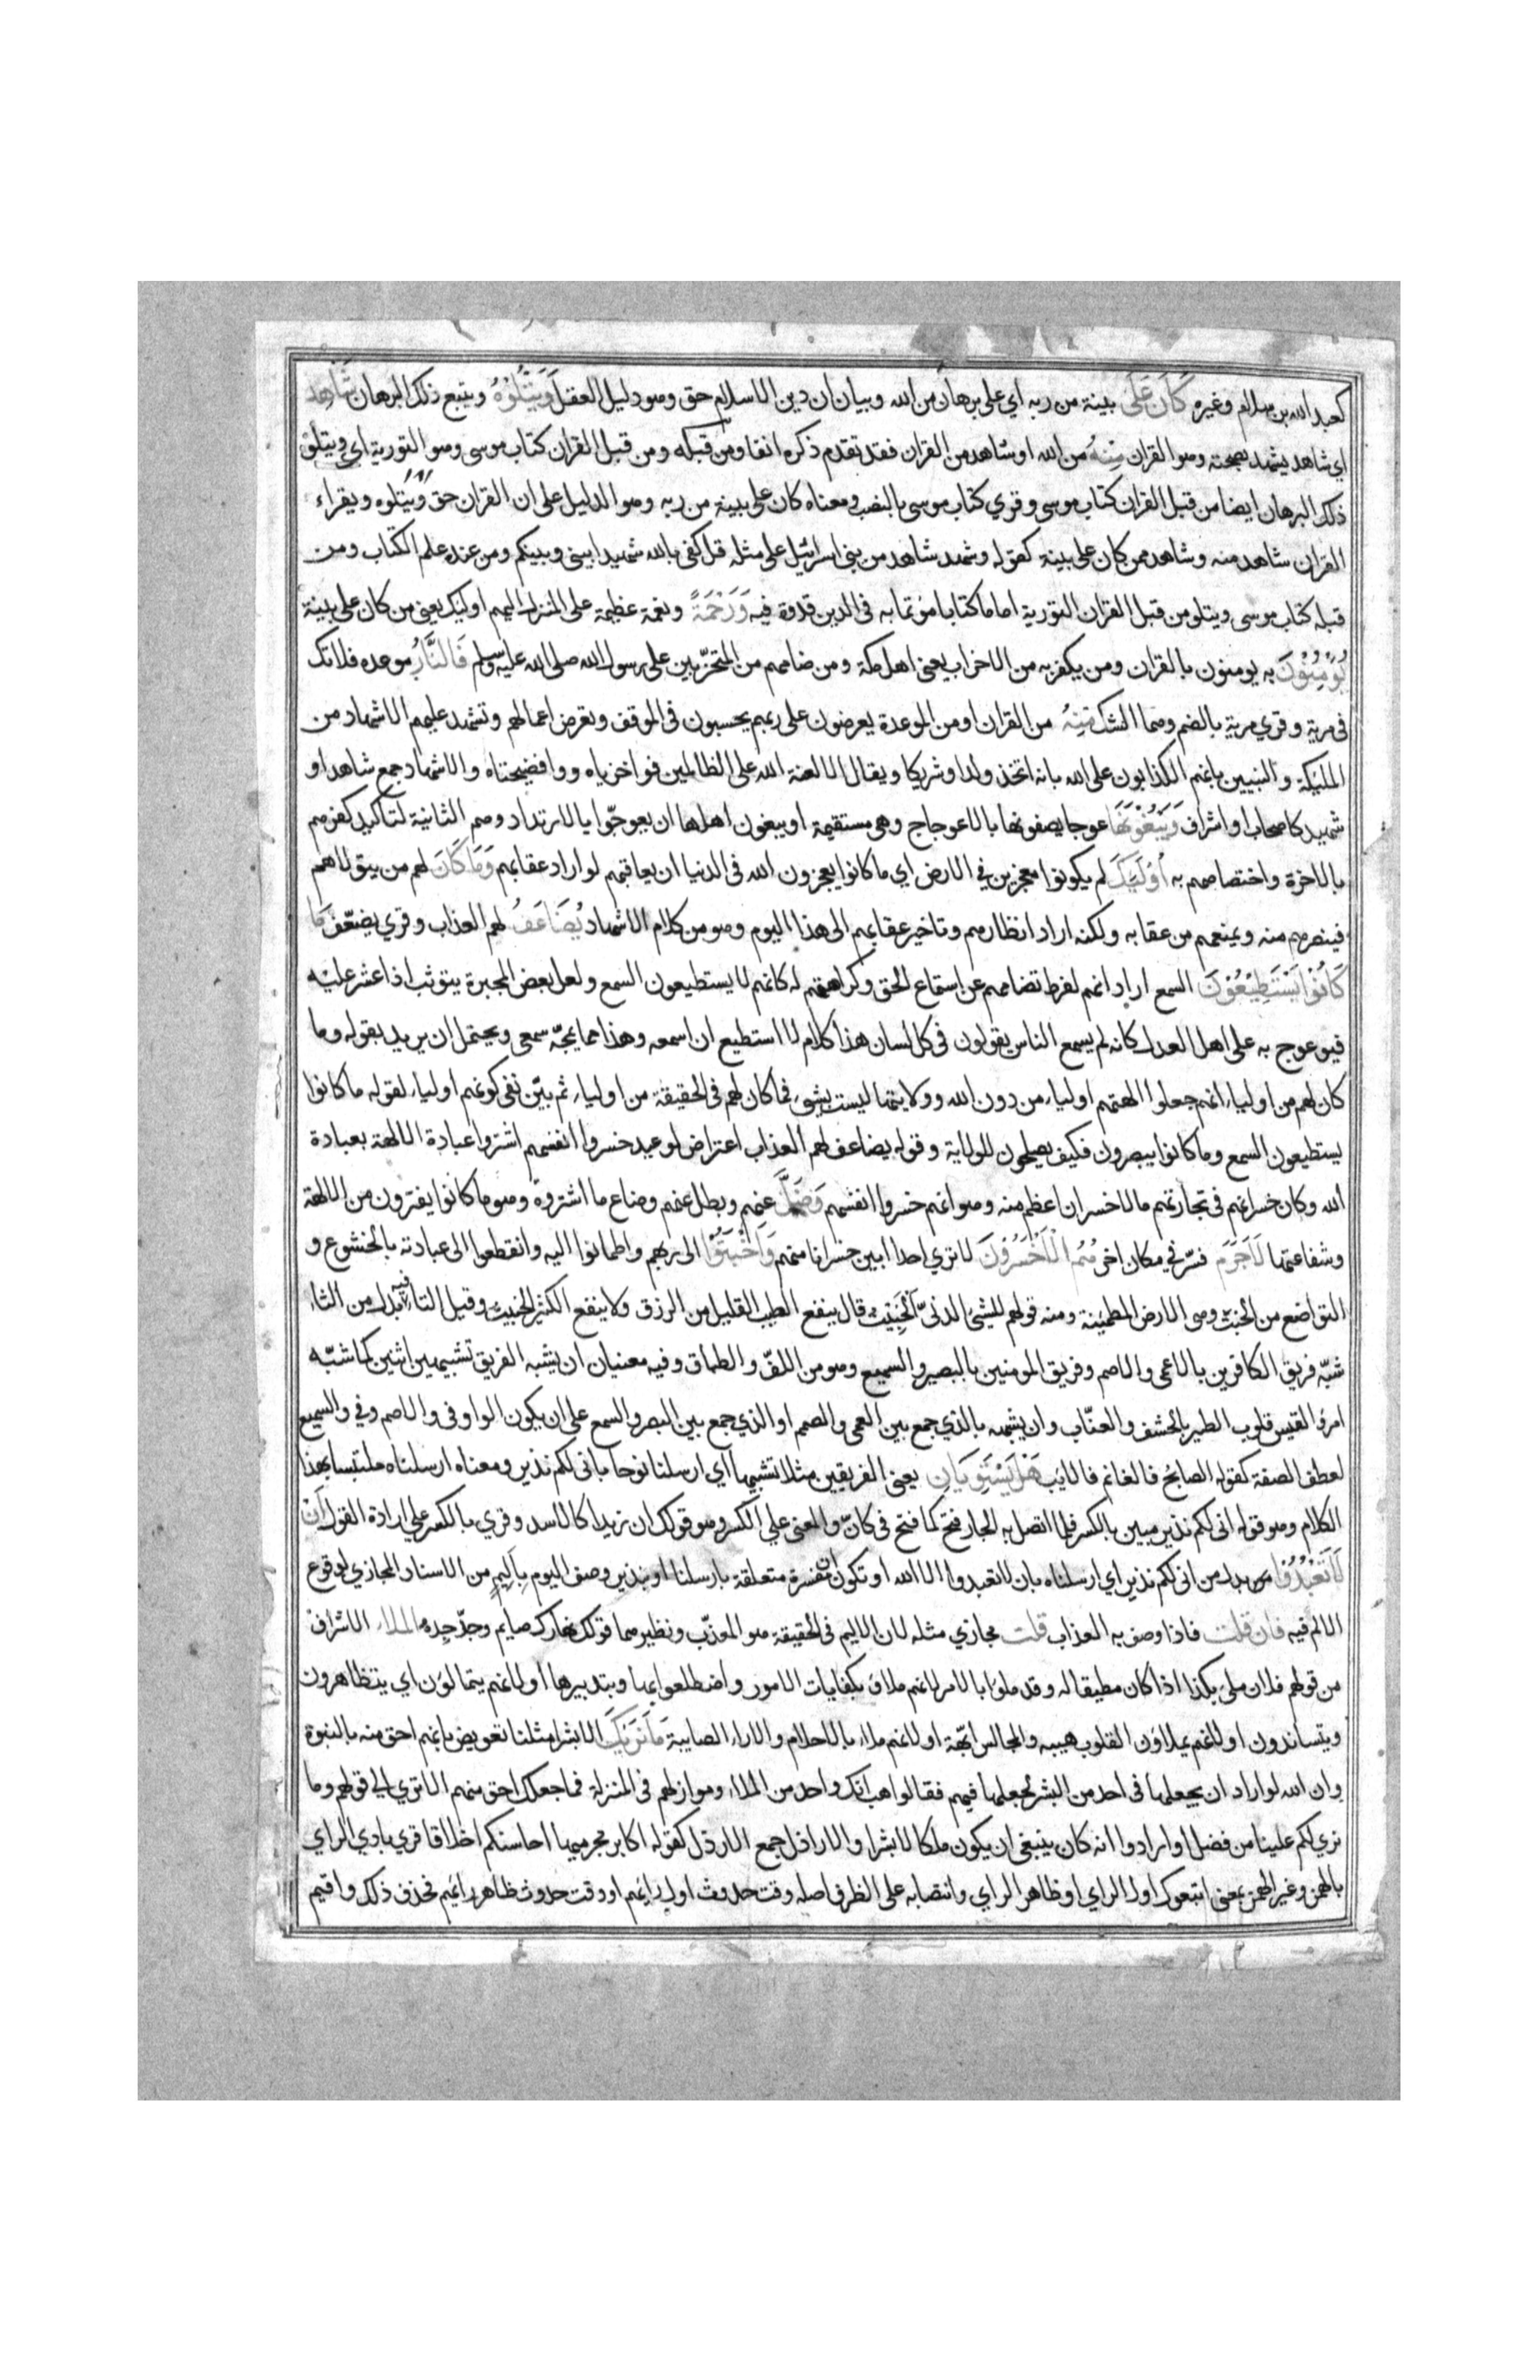 كعبد الله بن سلام وغيره كَانَ عَلَى بينة من ربه اي على برهان من الله وبيان ان دين الاسلام حق وهو دليل العقل وَيَتْلُوْهُ ويتبع ذلك البرهان شَاهِد
اي شاهد يشهد بصحته وهو القران مِنْهُ من الله او شاهد من القران فقد تقدم ذكره انفا ومن قبله ومن قبل القران كتاب موسى وهو التورية اي ويتلو
ذلك البرهان ايضا من قبل القران كتاب موسى وقري كتاب موسى بالنصب ومعناه كان على بينة من ربه وهو الدليل على ان القران حق ويتلوه ويقراء
القران شاهد منه وشاهد ممن كان على بينة كقوله وشهد شاهد من بني اسرائيل على مثله قل كفى بالله شهيدا بيني وبينكم ومن عنده علم الكتاب ومن
قبله كتاب موسى ويتلو من قبل القران التورية اماما كتابا مؤتما به فى الدين قدوة فيه وَرَحْمَةً ونعمة عظيمة على المنزل اليهم اوليك يعني من كان على بينة
يُؤْمِنُوْنَ به يومنون بالقران ومن يكفر به من الاحزاب يعني اهل مكة ومن ضامهم من المتحزّبين على رسول الله صلى الله عليه وسلم فَالنَّارُ موعده فلاتك
فى مرية وقري مرية بالضم وهما الشك مِنْهُ من القران او من الموعدة يعرضون على ربهم يحبسون فى الموقف وتعرض اعمالهم وتشهد عليهم الاشهاد من
المليكة والنبيين بانهم الكذابون على الله بانه اتخذ ولدا وشريكا ويقال الا لعنة الله على الظالمين فواخزياه ووافضيحتاه والاشهاد جمع شاهد او
شهيد كاصحاب او اشراف وَيَبْغُوْنَهَا عوجا يصفونها بالاعوجاج وهى مستقيمة او يبغون اهلها ان يعوجّوا بالارتداد وهم الثانية لتاكيد كفرهم
بالاخرة واختصاصهم به أُوْلَيِكَ لم يكونوا معجزين في الارض اي ما كانوا يعجزون الله فى الدنيا ان يعاقبهم لو اراد عقابهم وَمَا كَانَ لهم من يتولاهم
فينصرهم منه ويمنعهم من عقابه ولكنه اراد انظارهم وتاخير عقابهم الى هذا اليوم وهو من كلام الاشهاد يُضَاعَفُ لهم العذاب وقري يضعّف مَا
كَانُوْا يَسْتَطِيْعُوْنَ السمع اراد انهم لفرط تضاممهم عن استماع الحق وكراهتهم له كانهم لا يستطيعون السمع ولعل بعض المجبرة يتوثب اذا عثر عليه
فيوعوع به على اهل العدل كانه لم يسمع الناس يقولون فى كل لسان هذا كلام لا استطيع ان اسمعه وهذا مما يمجّه سمعى ويحتمل ان يريد بقوله وما
كان لهم من اولياء انهم جعلوا الهتهم اولياء من دون الله وولايتها ليست بشي فما كان لهم فى الحقيقة من اولياء ثم بيّن نفى كونهم اولياء لقوله ما كانوا
يستطيعون السمع وما كانوا يبصرون فكيف يصلحون للولاية وقوله يضاعف لهم العذاب اعتراض لوعيد خسروا انفسهم اشتروا عبادة الالهة بعبادة
الله وكان خسرانهم فى تجارتهم ما لا خسران اعظم منه وهو انهم خسروا انفسهم وَضَلَّ عنهم وبطل عنهم وضاع ما اشتروه وهو ما كانوا يفترون من الالهة
وشفاعتها لَاجَرَمَ فسّر في مكان اخر هُمُ الْاَخْسَرُوْنَ لا تري احدا ابين خسرانا منهم وَاَخْبَتُوْا الى ربهم واطمانوا اليه وانقطعوا الى عبادته بالخشوع و
التواضع من الخبت وهى الارض المطمينة ومنه قولهم للشيئ الدنيّ الْخَبِيْت قال ينفع الطيب القليل من الرزق ولا ينفع الكثير الخبيت وقيل التاء فيه بدل من الثاء
شبّه فريق الكافرين بالاعمى والاصم وفريق المومنين بالبصير والسميع وهو من اللفّ والطباق وفيه معنيان ان يشبه الفريق تشبيهين اثنين كما شبّه
امرؤ القيس قلوب الطير بالحشف والعنّاب وان يشبهه بالذي جمع بين العمى والصمم او الذي جمع بين البصر والسمع على ان يكون الواو فى والاصم وفي والسميع
لعطف الصفة كقوله الصابح فالغانم فالايب هَلْ يَسْتَوِيَانِ يعني الفريقين مثلا تشبيها اي ارسلنا نوحا باني لكم نذير ومعناه ارسلناه ملتبسا بهذا
الكلام وهو قوله انى لكم نذير مبين بالكسر فلما اتصل به الجار فتح كما فتح فى كانّ والمعنى علي الكسر وهو قولك ان زيدا كالاسد وقري بالكسر علي ارادة القول اَنْ
لَاتَعْبُدُوْا بدل من انى لكم نذير اي ارسلناه بان لا تعبدوا الا الله او تكون ان مفسرة متعلقة بارسلنا او بنذير وصف اليوم بِاَلِيْمٍ من الاسناد المجازي لوقوع
الالم فيه فان قلت فاذا وصف به العذاب قلت مجازي مثله لان الاليم فى الحقيقة هو المعذّب ونظيرهما قولك نهارك صايم وجدّ جدّه الملاء الاشراف
من قولهم فلان ملىء بكذا اذا كان مطيقا له وقد ملؤ بالامر لانهم ملاؤ بكفايات الامور واضطلعوا بها وبتدبيرها او لانهم يتمالؤن اي يتظاهرون
ويتساندون او لانهم يملاؤن القلوب هيبه والمجالس ابّهة او لانهم ملاء بالاحلام والاراء الصايبة مَا نَرَىكَ الا بشرا مثلنا تعويض بانهم احق منه بالنبوة
وان الله لو اراد ان يجعلها فى احد من البشر لجعلها فيهم فقالوا هب انك واحد من الملاء وموازلهم فى المنزلة فما جعلك احق منهم الا تري الى قولهم وما
نري لكم علينا من فضل او ارادوا انه كان ينبغى ان يكون ملكا لا بشرا والاراذل جمع الارذل كقوله اكابر مجرميها احاسنكم اخلاقا قري بادي الراي
بالهمز وغير الهمز بمعنى اتبعوك اول الراي او ظاهر الراي وانتصابه على الظرف اصله وقت حدوث اول رايهم او وقت حدوث ظاهر رايهم فحذف ذلك واقيم